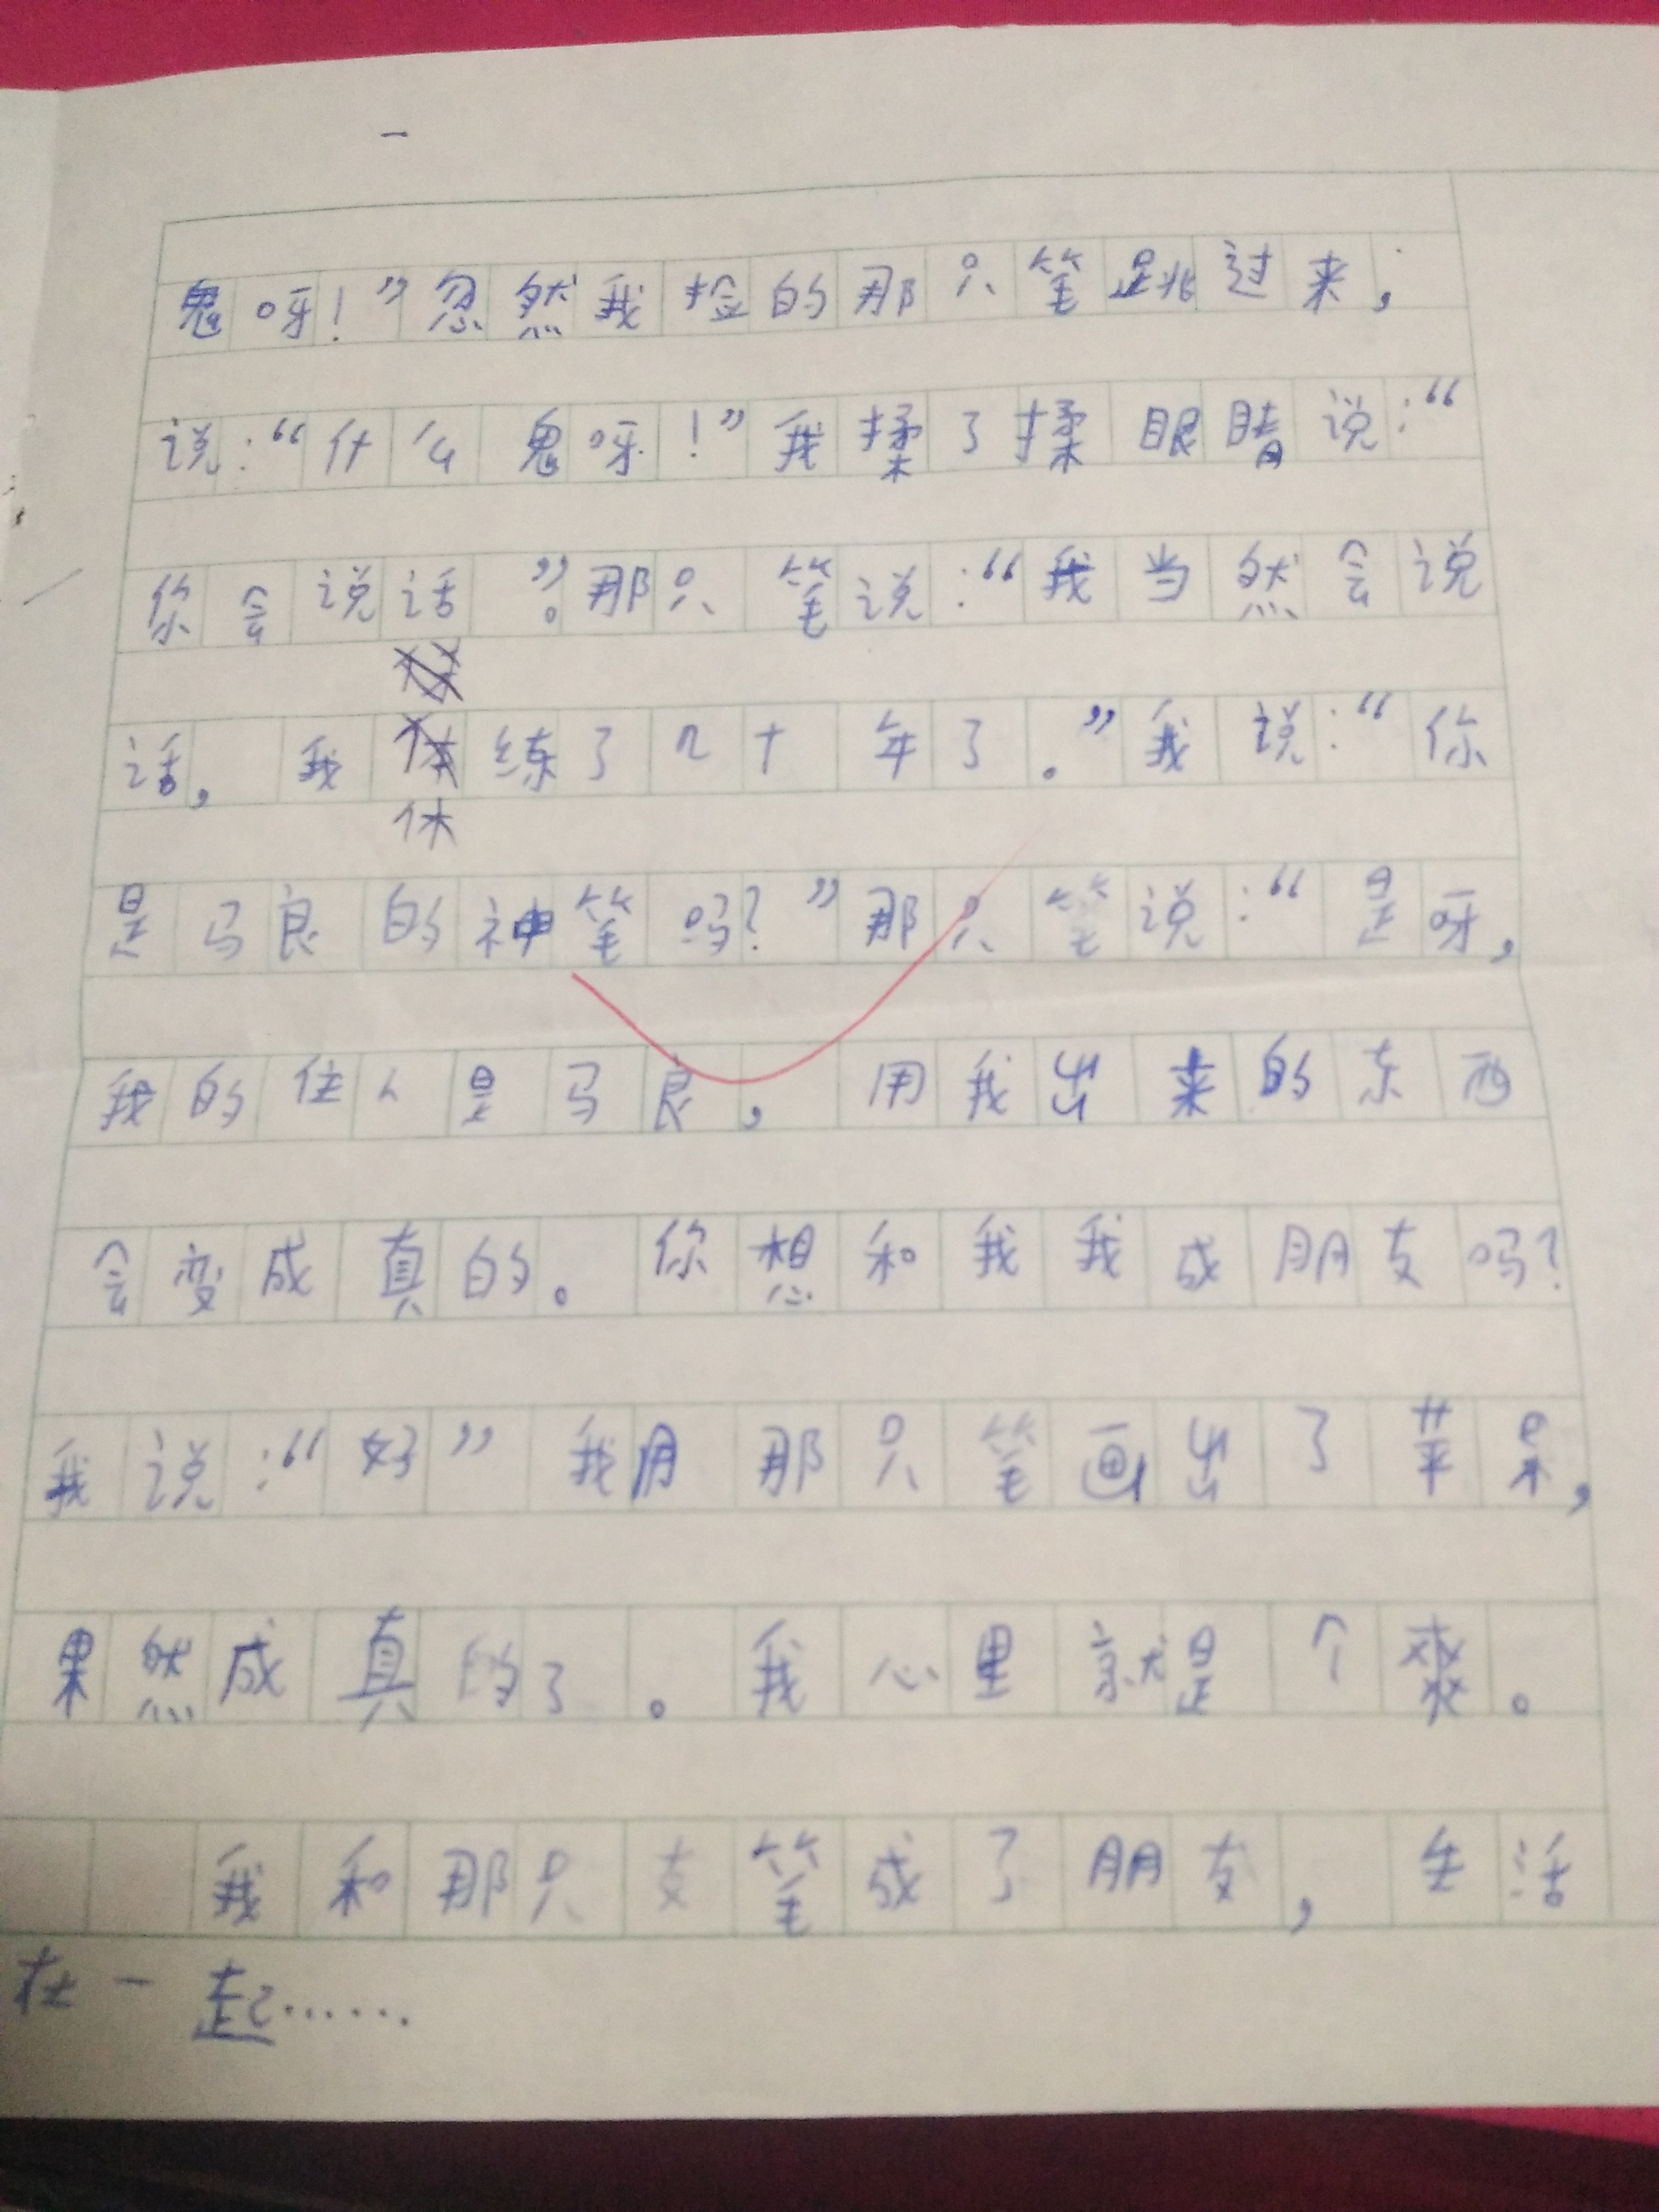 鬼呀！”忽然我捡的那只笔跳过来，
说：“什么鬼呀！”我揉了揉眼睛说：“
你会说话”。那只笔说：“我当然会说
话，我休练了几十年了。”我说：“你
是马良的神笔吗？”那只笔说：“是呀，
我的住人是马良，用我出来的东西
会变成真的。你想和我我成朋友吗？
我说：“好”我用那只笔画出了苹果，
果然成真的了。我心里就是个爽。
我和那只支笔成了朋友，生活
在一起……